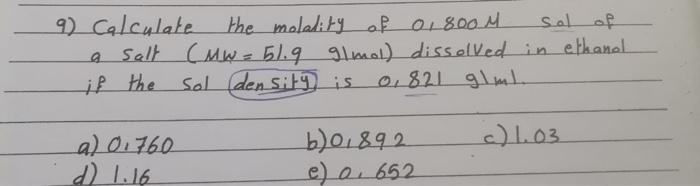 9) Calculate the moladity of 0,800M sol of
a salt (MW = 51.9 g/mol) dissolved in ethanol
if the sol density is 0,821 g/ml.
a) 0,760 b) 0,892 c) 1.03
d) 1.16 e) 0.652